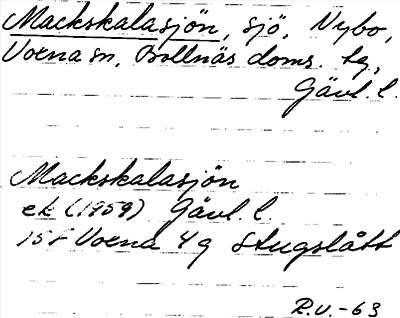 Mackskalasjön, sjö, Nybo,
Voxna sn, Bollnäs doms. tg,
Gävl. l.
Mackskalasjön
ek (1959) Gävl. l.
15 F Voxna 4 g Stugslått
R.V. -63